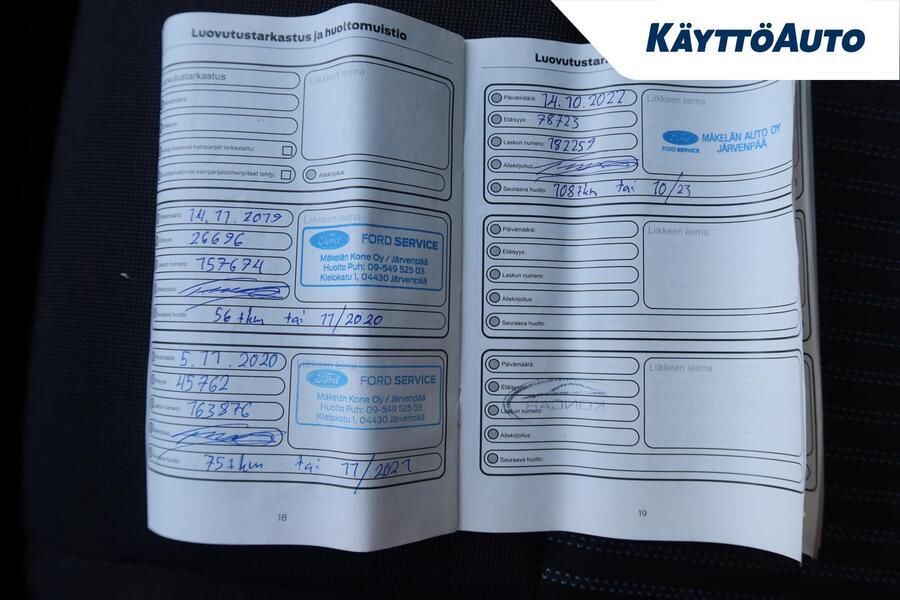 KÄYTTÖAUTO
Luovutustarkastus ja huoltomuistio
Liikkeen leima
Allekirjoitus
14.11.2019
26696
157674
Liikkeen leima
Ford FORD SERVICE
Mäkelän Kone Oy / Järvenpää
Huolto Puh: 09-549 525 03
Kielokatu 1, 04430 Järvenpää
Seuraava huolto: 56 tkm tai 11/2020
5.11.2020
45762
163876
Liikkeen leima
Ford FORD SERVICE
Mäkelän Kone Oy / Järvenpää
Huolto Puh: 09-549 525 03
Kielokatu 1, 04430 Järvenpää
75 tkm tai 11/2021
18
Päivämäärä: 14.10.2022
Etäisyys: 78723
Laskun numero: 182259
Allekirjoitus:
Seuraava huolto: 108 tkm tai 10/23
Liikkeen leima
Ford FORD SERVICE
MÄKELÄN AUTO OY
JÄRVENPÄÄ
Päivämäärä:
Etäisyys:
Laskun numero:
Allekirjoitus:
Seuraava huolto:
Liikkeen leima
Päivämäärä:
Etäisyys:
Laskun numero:
Allekirjoitus:
Seuraava huolto:
Liikkeen leima
19